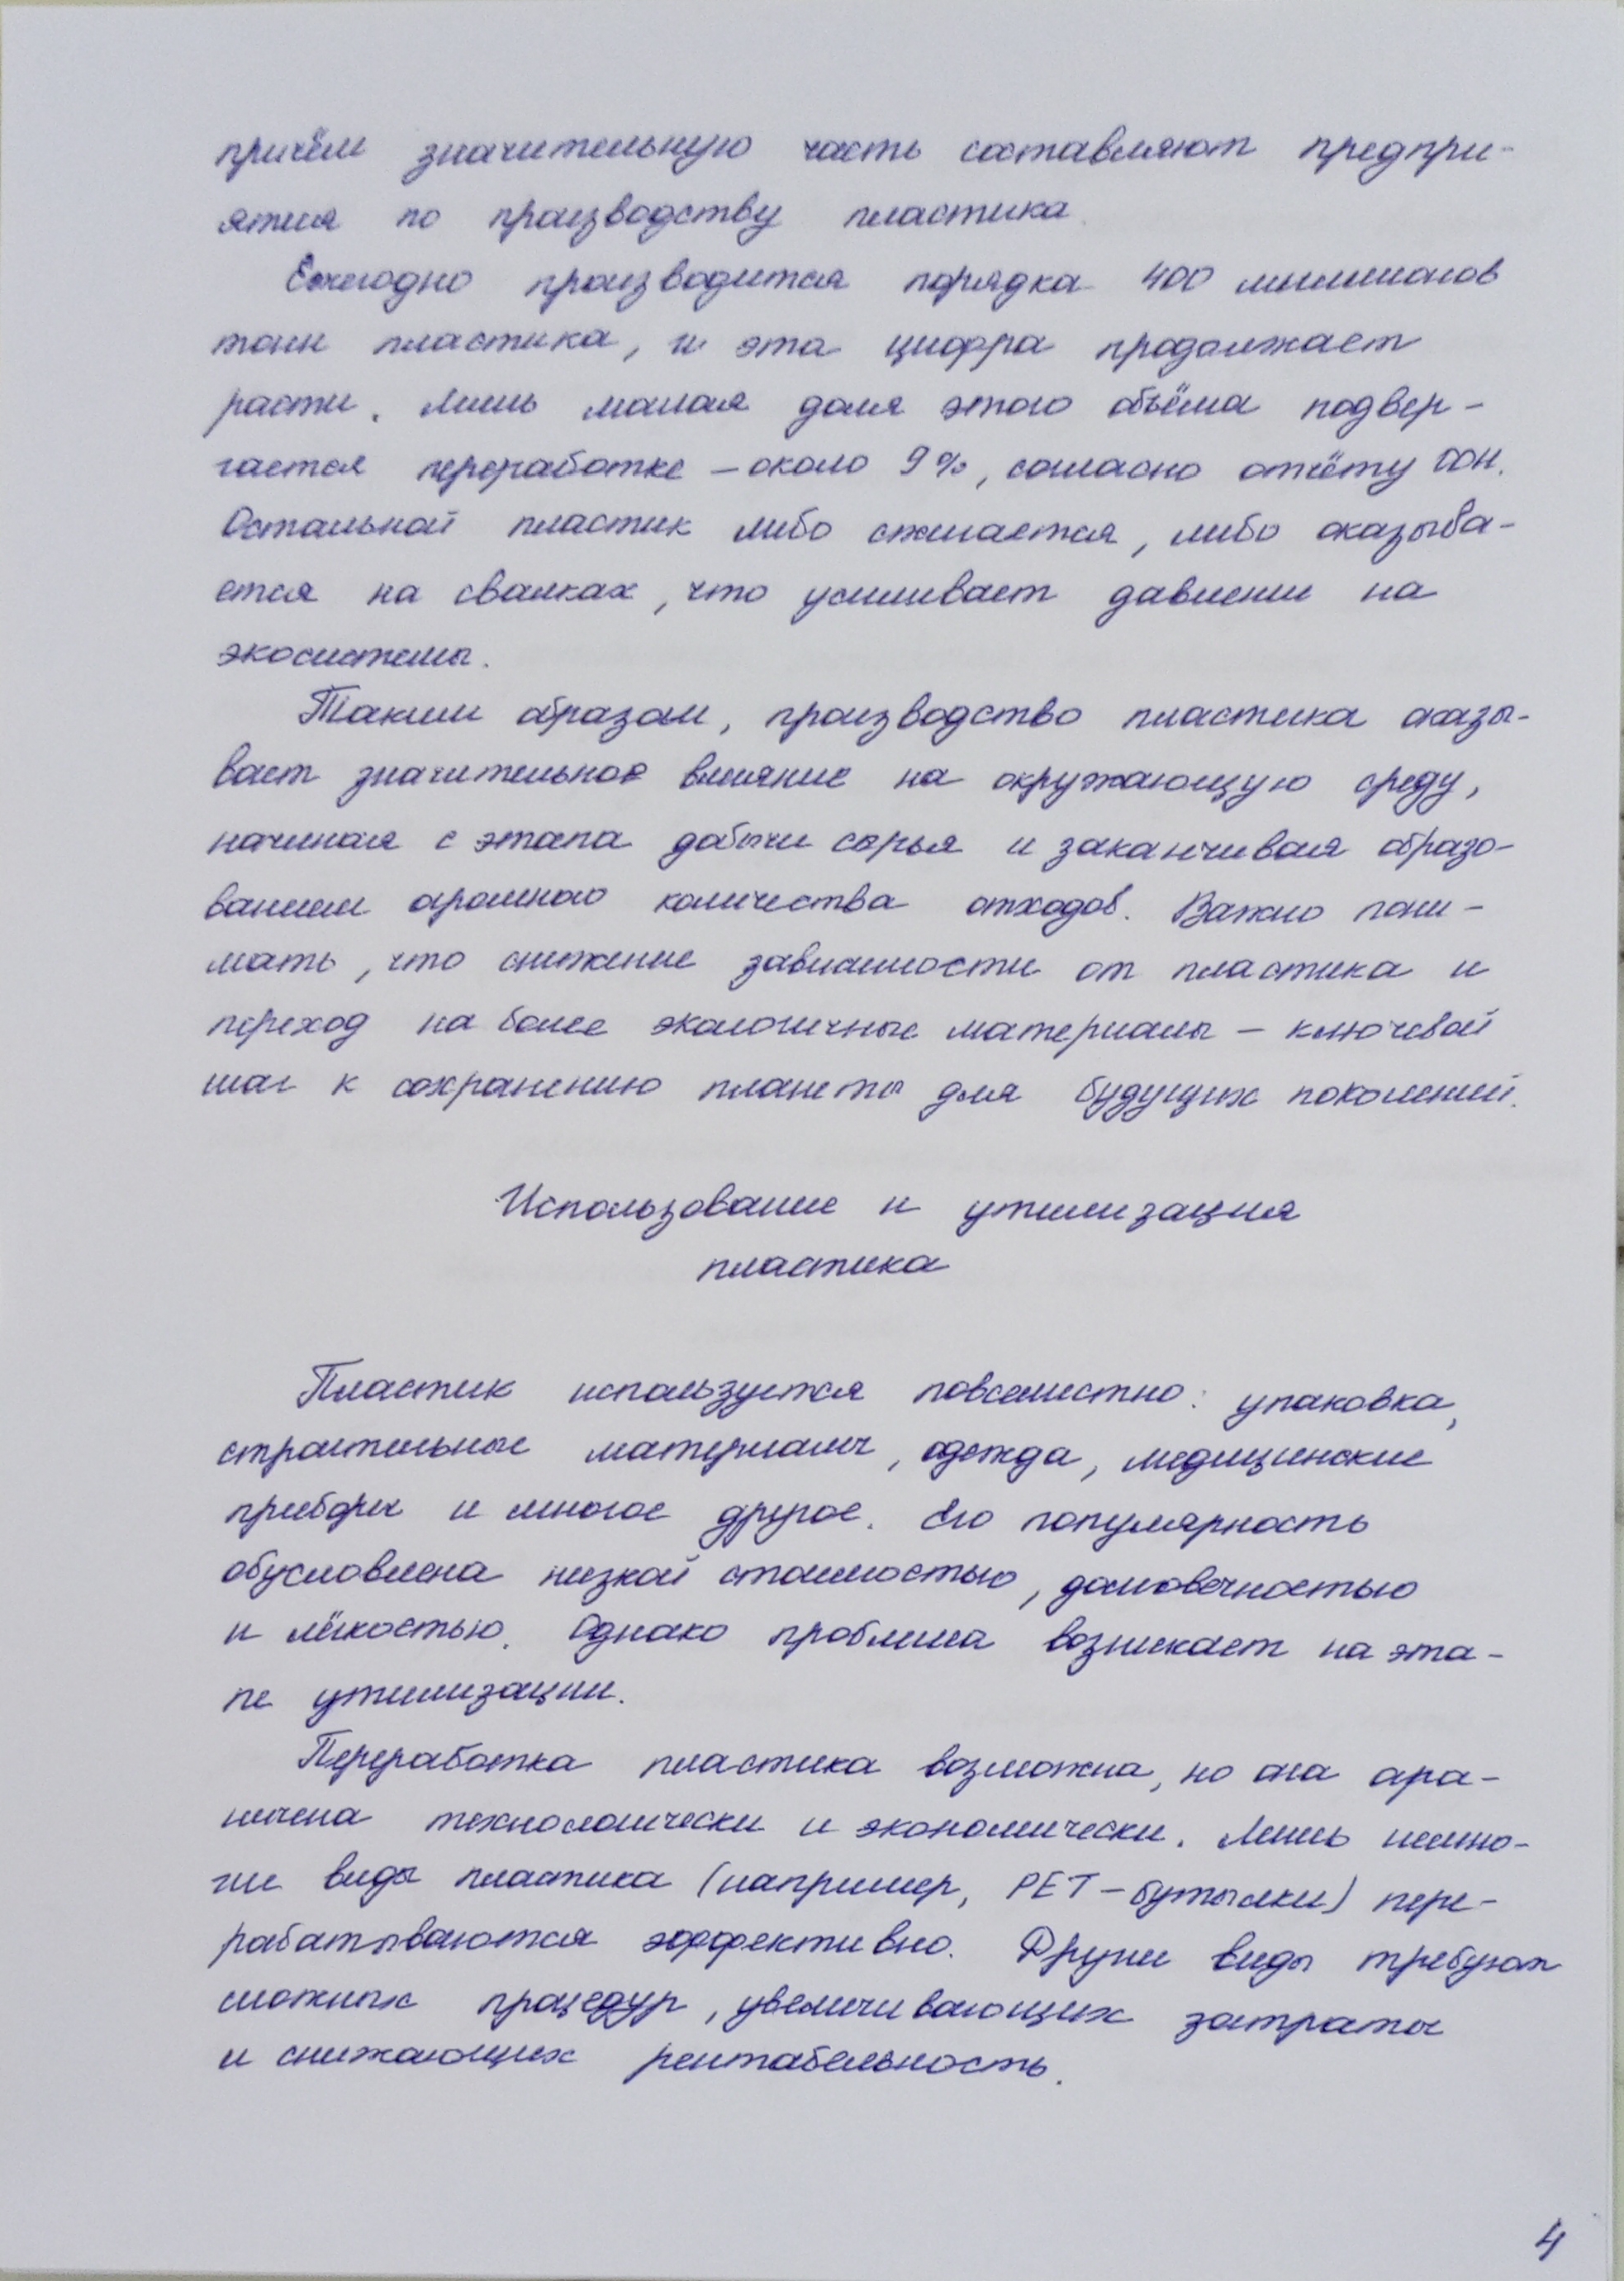 причём значительную часть составляют предпри-
ятия по производству пластика.
Ежегодно производится порядка 400 миллионов
тонн пластика, и эта цифра продолжает
расти. Лишь малая доля этого объёма подвер-
гается переработке – около 9%, согласно отчёту ООН.
Остальной пластик либо сжигается, либо оказыва-
ется на свалках, что усиливает давление на
экосистемы.
Таким образом, производство пластика оказы-
вает значительное влияние на окружающую среду,
начиная с этапа добычи сырья и заканчивая образо-
ванием огромного количества отходов. Важно пони-
мать, что снижение зависимости от пластика и
переход на более экологичные материалы – ключевой
шаг к сохранению планеты для будущих поколений.
Использование и утилизация
пластика
Пластик используется повсеместно: упаковка,
строительные материалы, одежда, медицинские
приборы и многое другое. Его популярность
обусловлена низкой стоимостью, долговечностью
и лёгкостью. Однако проблема возникает на эта-
пе утилизации.
Переработка пластика возможна, но она огра-
ничена технологически и экономически. Лишь немно-
гие виды пластика (например, PET – бутылки) пере-
рабатываются эффективно. Другие виды требуют
сложных процедур, увеличивающих затраты
и снижающих рентабельность.
4